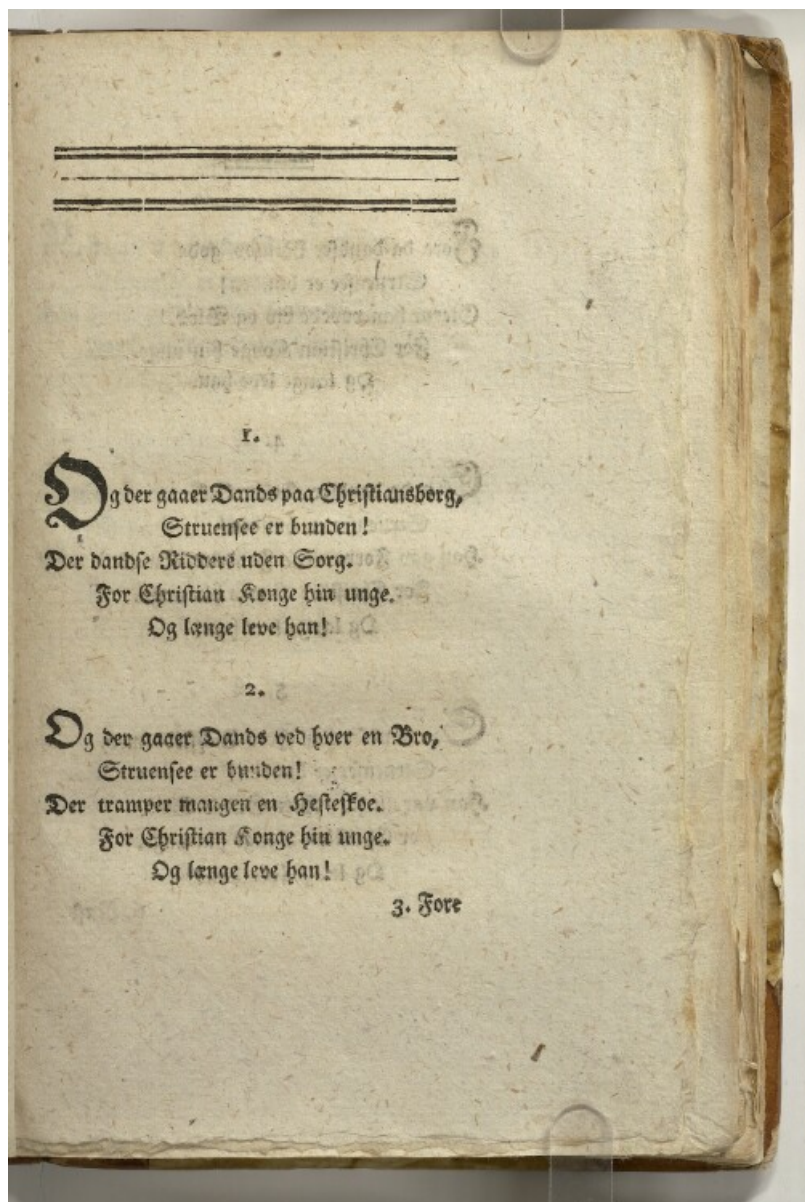 1.
Og der gaaer Dands paa Christiansborg,
Struensee er bunden!
Der dandse Riddere uden Sorg.
For Christian Konge hin unge.
Og længe leve han!
2.
Og der gaaer Dands ved hver en Bro,
Struensee er bunden!
Der tramper mangen en Hesteskoe.
For Christian Konge hin unge.
Og længe leve han!
3. Fore